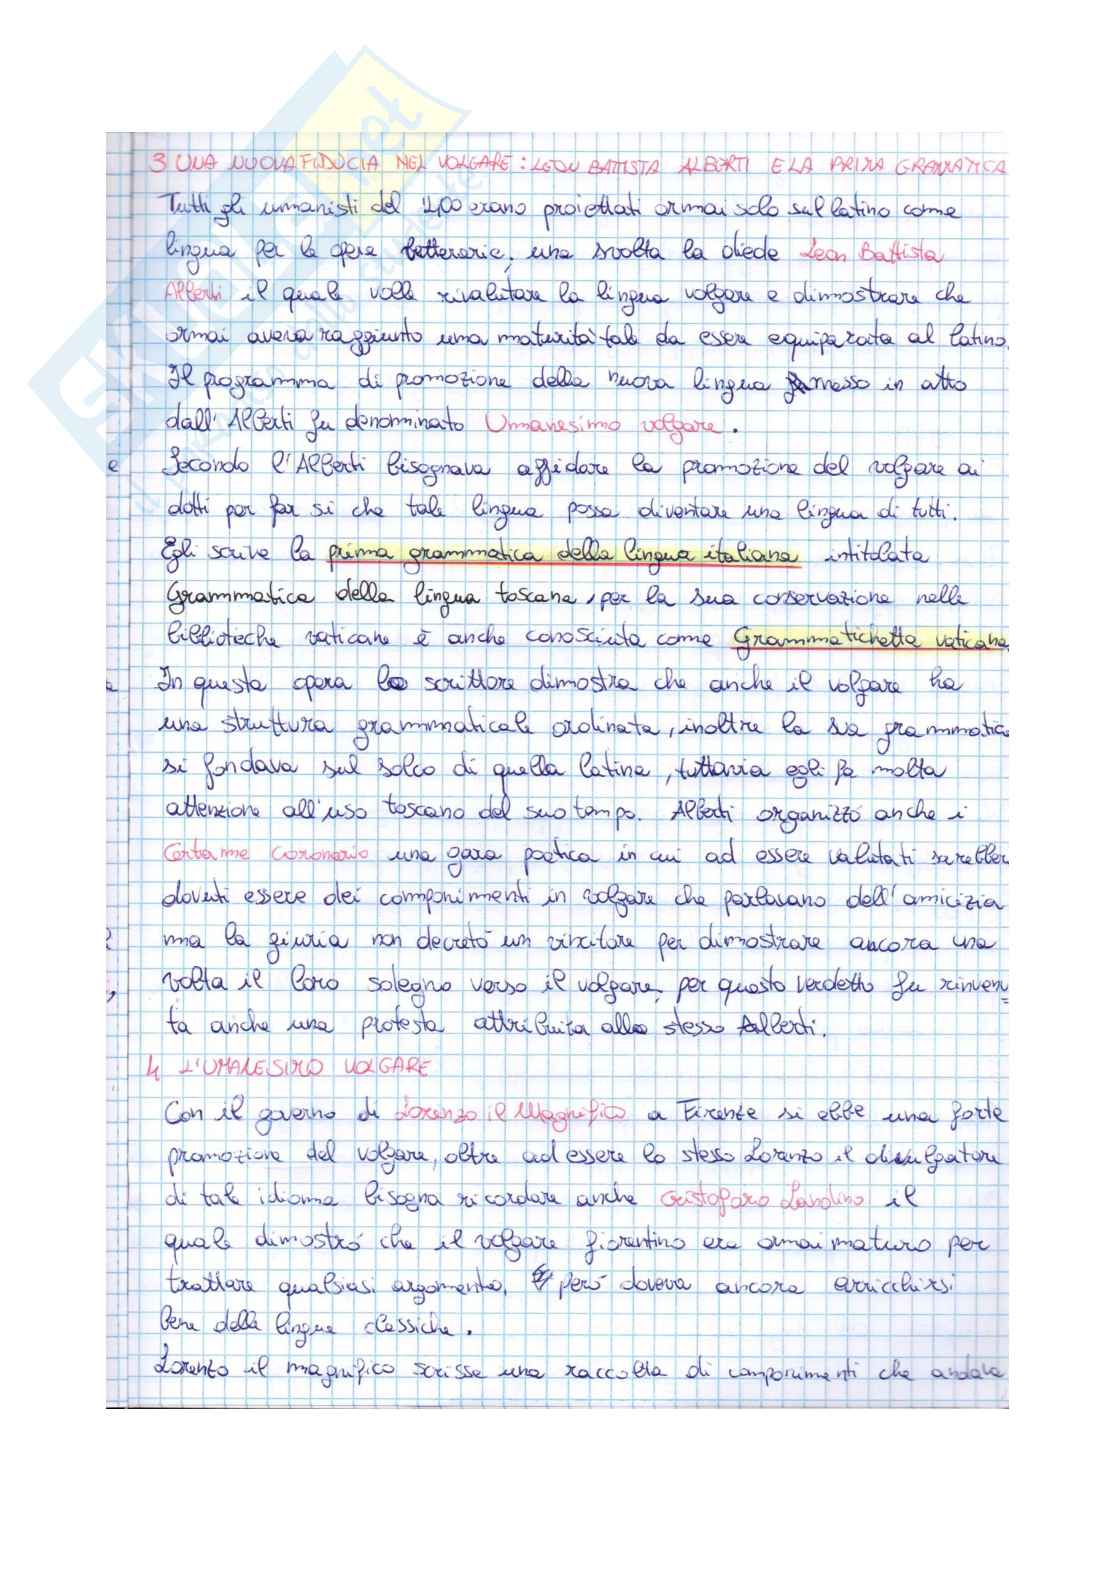 3 UNA NUOVA FIDUCIA NEL VOLGARE: LEON BATTISTA ALBERTI E LA PRIMA GRAMMATICA
Tutti gli umanisti del '400 erano proiettati ormai solo sul latino come
lingua per le opere letterarie, una svolta la diede Leon Battista
Alberti il quale volle rivalutare la lingua volgare e dimostrare che
ormai aveva raggiunto una maturità tale da essere equiparata al latino.
Il programma di promozione della nuova lingua messo in atto
dall'Alberti fu denominato Umanesimo volgare.
Secondo l'Alberti bisognava affidare la promozione del volgare ai
dotti per far si che tale lingua possa diventare una lingua di tutti.
Egli scrive la prima grammatica della lingua italiana intitolata
Grammatica della lingua toscana, per la sua conservazione nelle
biblioteche vaticane è anche conosciuta come Grammatichetta vaticana
In questa opera lo scrittore dimostra che anche il volgare ha
una struttura grammaticale ordinata, inoltre la sua grammatica
si fondava sul solco di quella latina, tuttavia egli fa molta
attenzione all'uso toscano del suo tempo. Alberti organizzò anche i
Certame Coronario una gara poetica in cui ad essere valutati sarebber
dovuti essere dei componimenti in volgare che parlavano dell'amicizia
ma la giuria non decretò un vincitore per dimostrare ancora una
volta il loro solegno verso il volgare, per questo verdetto fu rinvenu=
ta anche una protesta attribuita allo stesso Alberti.
4 L'UMANESIMO VOLGARE
Con il governo di Lorenzo il Magnifico a Firenze si ebbe una forte
promozione del volgare, oltre ad essere lo stesso Lorenzo il divulgatore
di tale idioma bisogna ricordare anche Cristoforo Landino il
quale dimostrò che il volgare fiorentino era ormai maturo per
trattare qualsiasi argomento, però doveva ancora arricchirsi
bene della lingue classiche.
Lorenzo il magnifico scrisse una raccolta di componimenti che andava